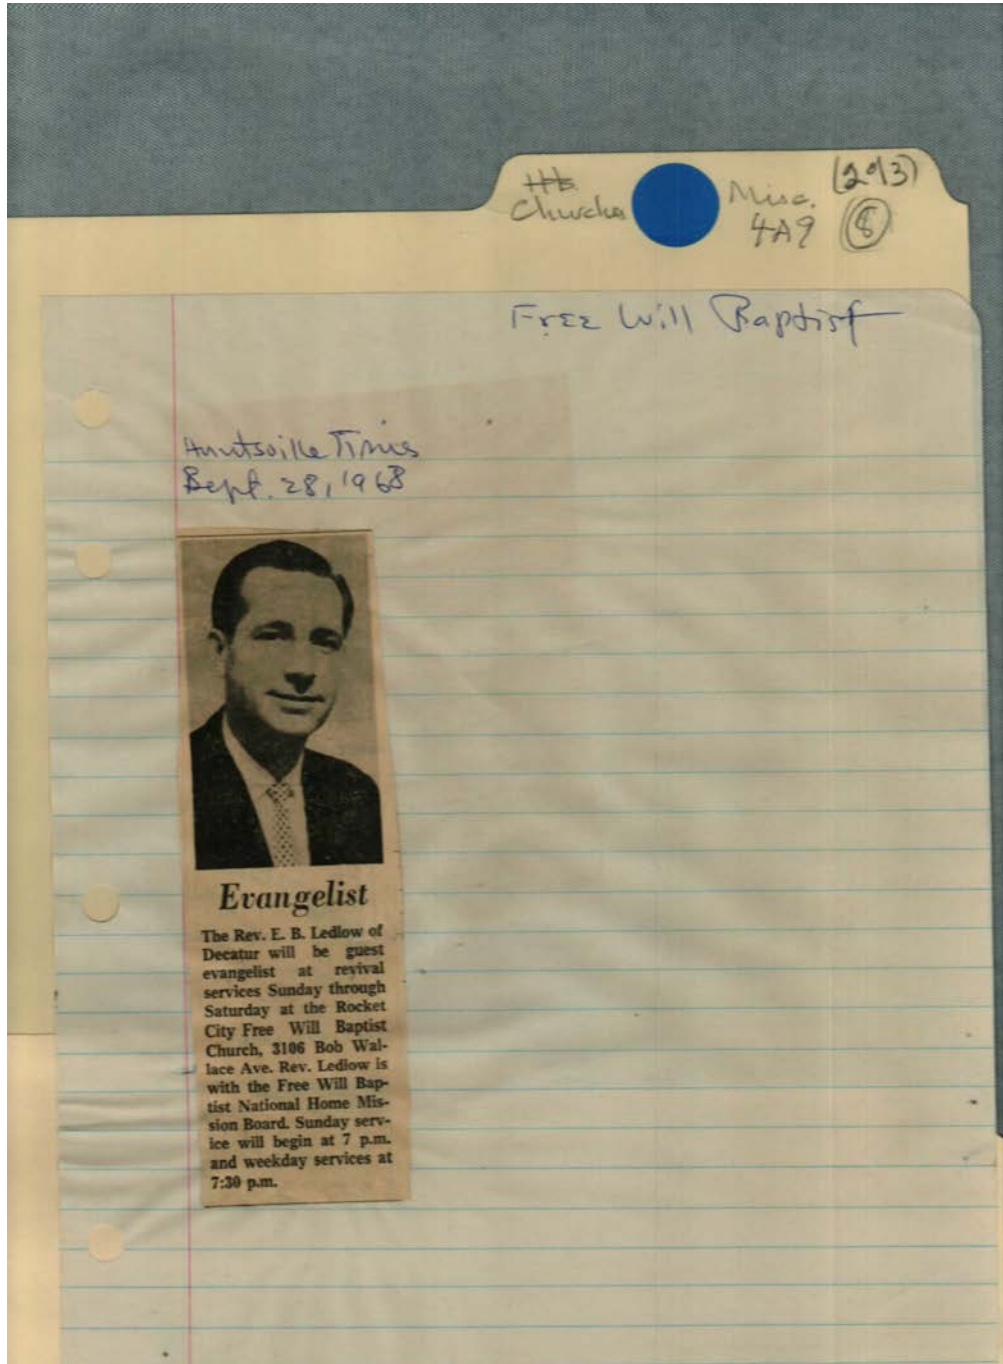 Hts.
Churches
Misc.
4A9
(2 of 3)
8
Free Will Baptist
Huntsville Times
Sept. 28, 1968
Evangelist
The Rev. E. B. Ledlow of
Decatur will be guest
evangelist at revival
services Sunday through
Saturday at the Rocket
City Free Will Baptist
Church, 3106 Bob Wal-
lace Ave. Rev. Ledlow is
with the Free Will Bap-
tist National Home Mis-
sion Board. Sunday serv-
ice will begin at 7 p.m.
and weekday services at
7:30 p.m.